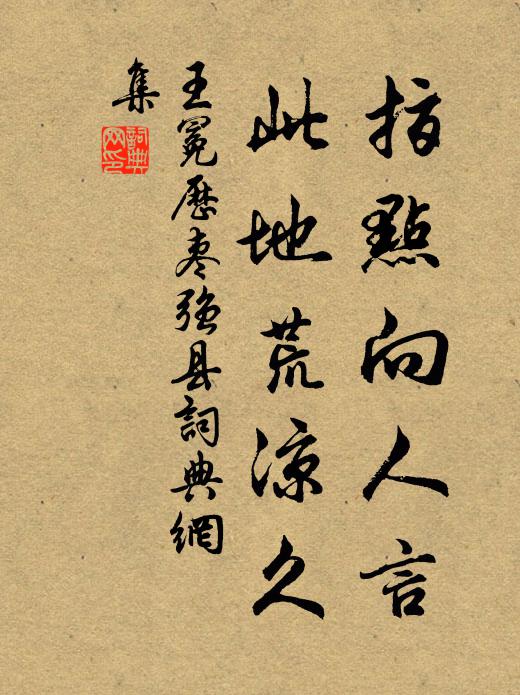 指點向人言
此地荒涼久
王冕歷枣强县詞典網
集
詞典
网印